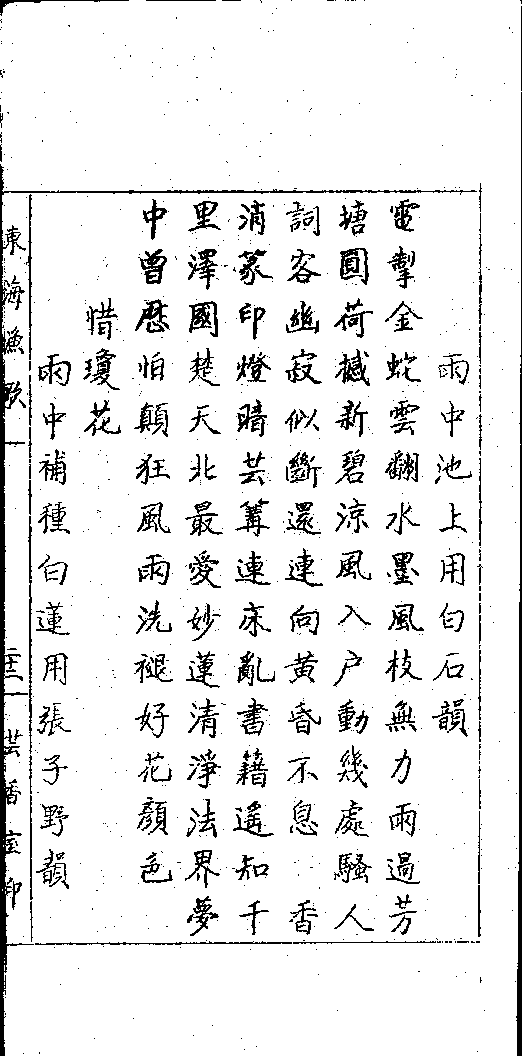 雨中池上用白石韻
電掣金蛇雲翻水墨風枝無力雨過芳
塘圓荷撼新碧涼風入户動幾處騷人
詞客幽寂似斷還連向黃昏不息　香
消篆印燈暗芸篝連床亂書籍遙知千
里澤國楚天北最愛妙蓮清淨法界夢
中曾歷怕顛狂風雨洗褪好花顏色
惜瓊花
雨中補種白蓮用張子野韻
東海漁歌
二
芸香室印